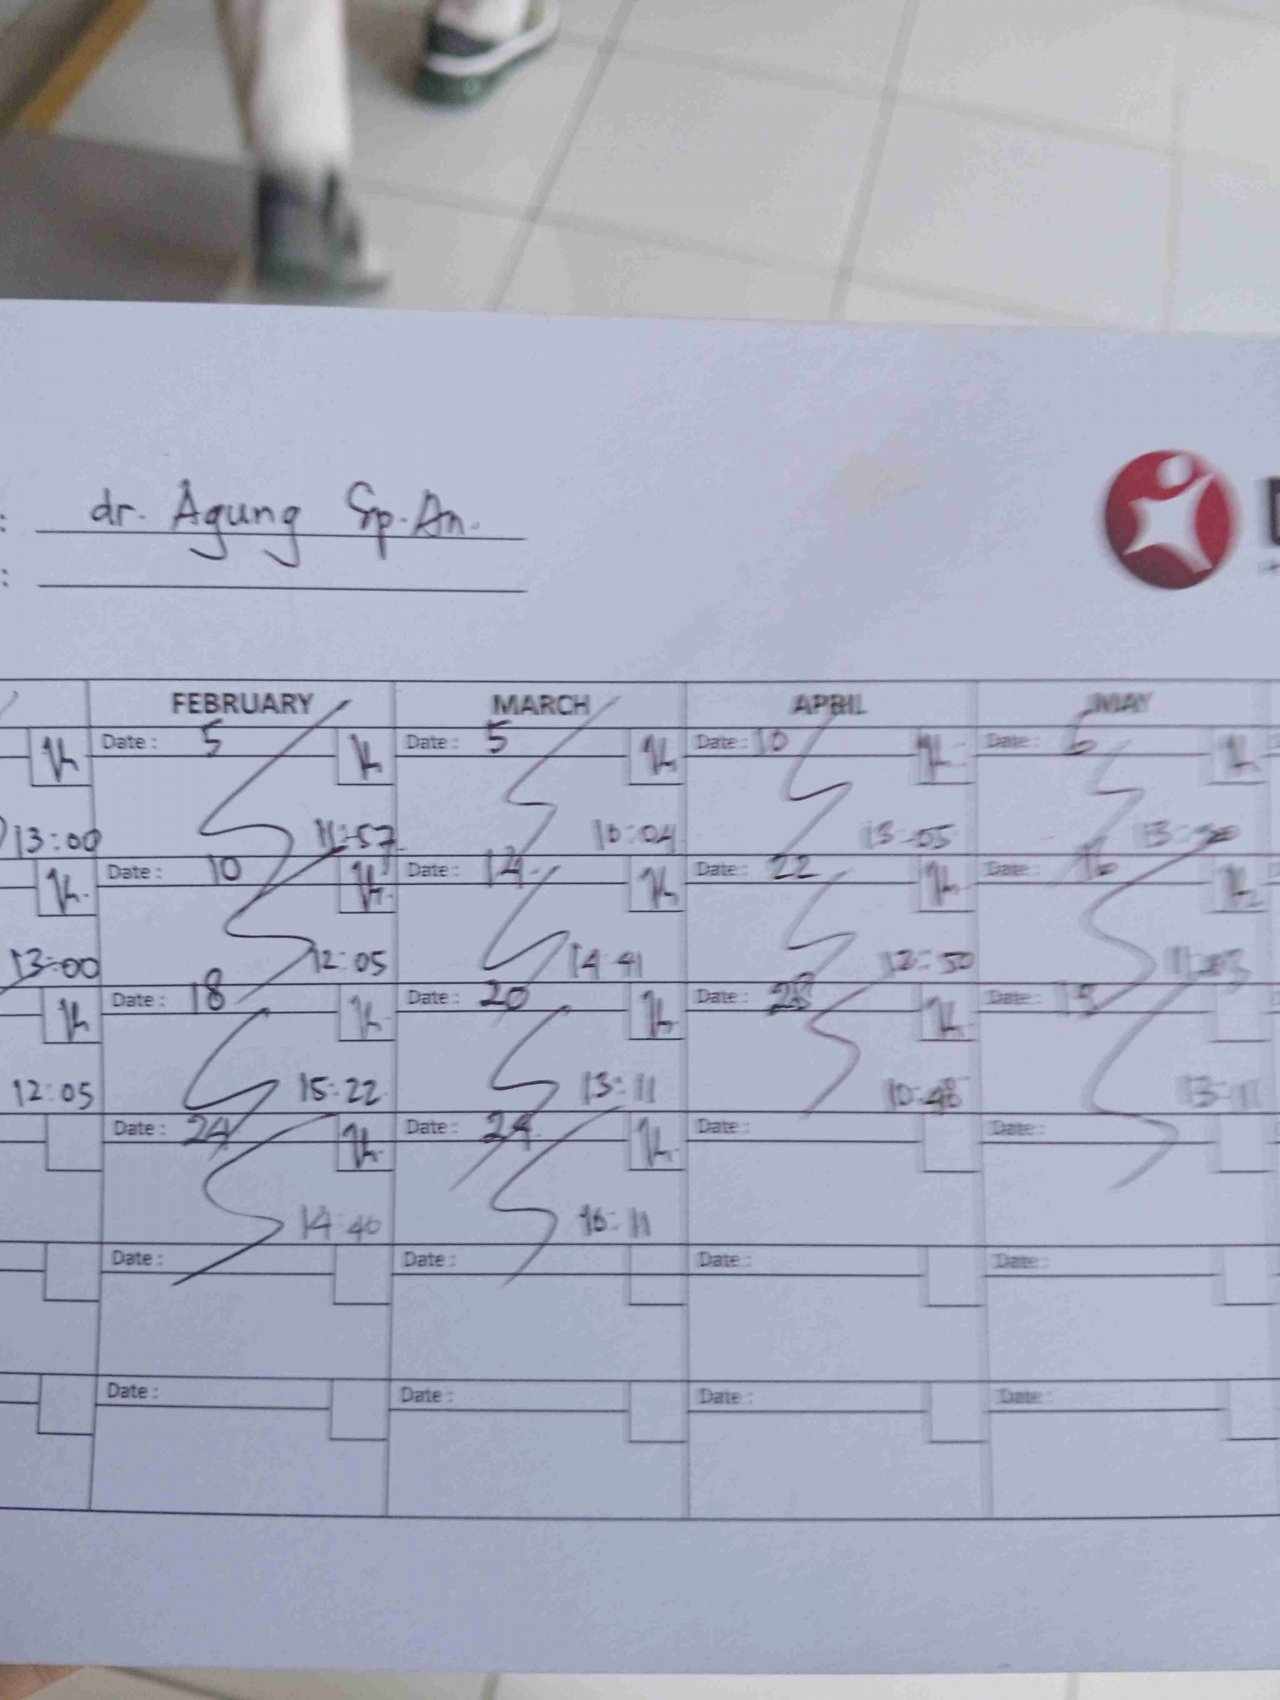 : dr. Agung Sp.An.
:
FEBRUARY MARCH APRIL MAY
Date : 5 Date : 5 Date : 10 Date : 6
13:00 11:57 13:05
Date : 10 Date : 14 Date : 22 Date : 16
13:00 12:05 14:41
Date : 18 Date : 20 Date : 28 Date :
12:05 15:22 13:11 10:48 13:11
Date : 24 Date : 24 Date : Date :
14:40 16:11
Date : Date : Date : Date :
Date : Date : Date : Date :